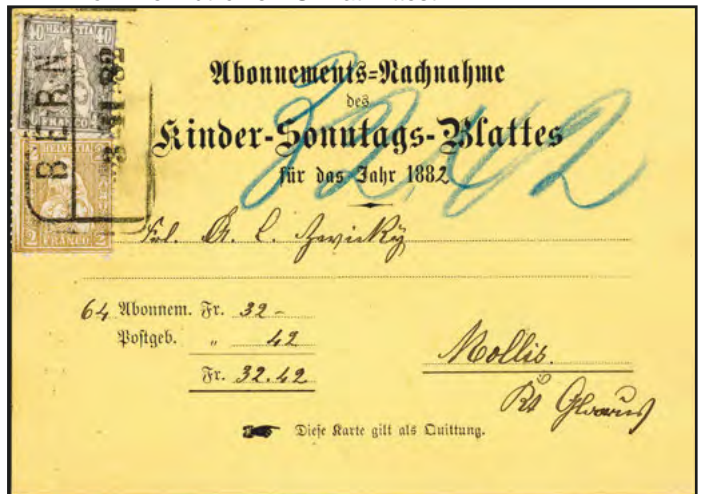 40 HELVETIA 40
FRANCO
HELVETIA
2 FRANCO 2
BERN
Abonnements=Nachnahme
des
Kinder-Sonntags-Blattes
für das Jahr 1882
32.42
Frl. A. L. Zwicky
64 Abonnem. Fr. 32 -
Postgeb. " 42
Fr. 32.42
Mollis.
Kt Glarus
Diese Karte gilt als Quittung.